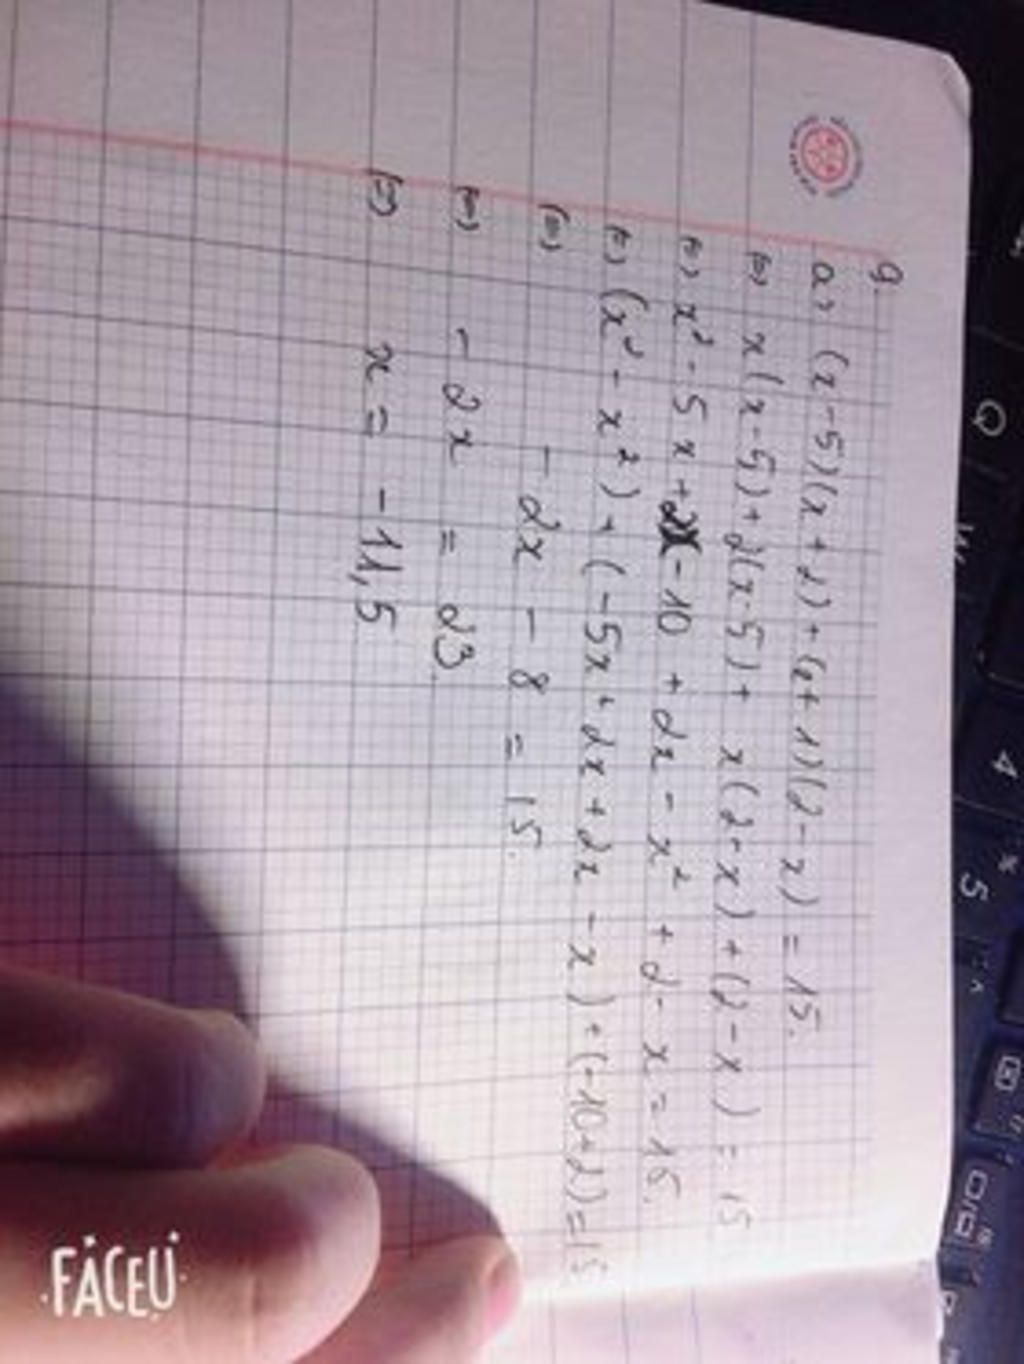 9.
a) (x-5)(x+2)+(x+1)(2-x)=15.
(=) x(x-5)+2(x-5)+ x(2-x)+(2-x)=15
(=) x²-5x+2x-10+2x-x²+2-x=15.
(=) (x²-x²)+(-5x+2x+2x-x)+(-10+2)=15
(=) -2x-8=15.
(=) -2x=23
(=) x=-11,5
Q
W
4
%
5
FACEU